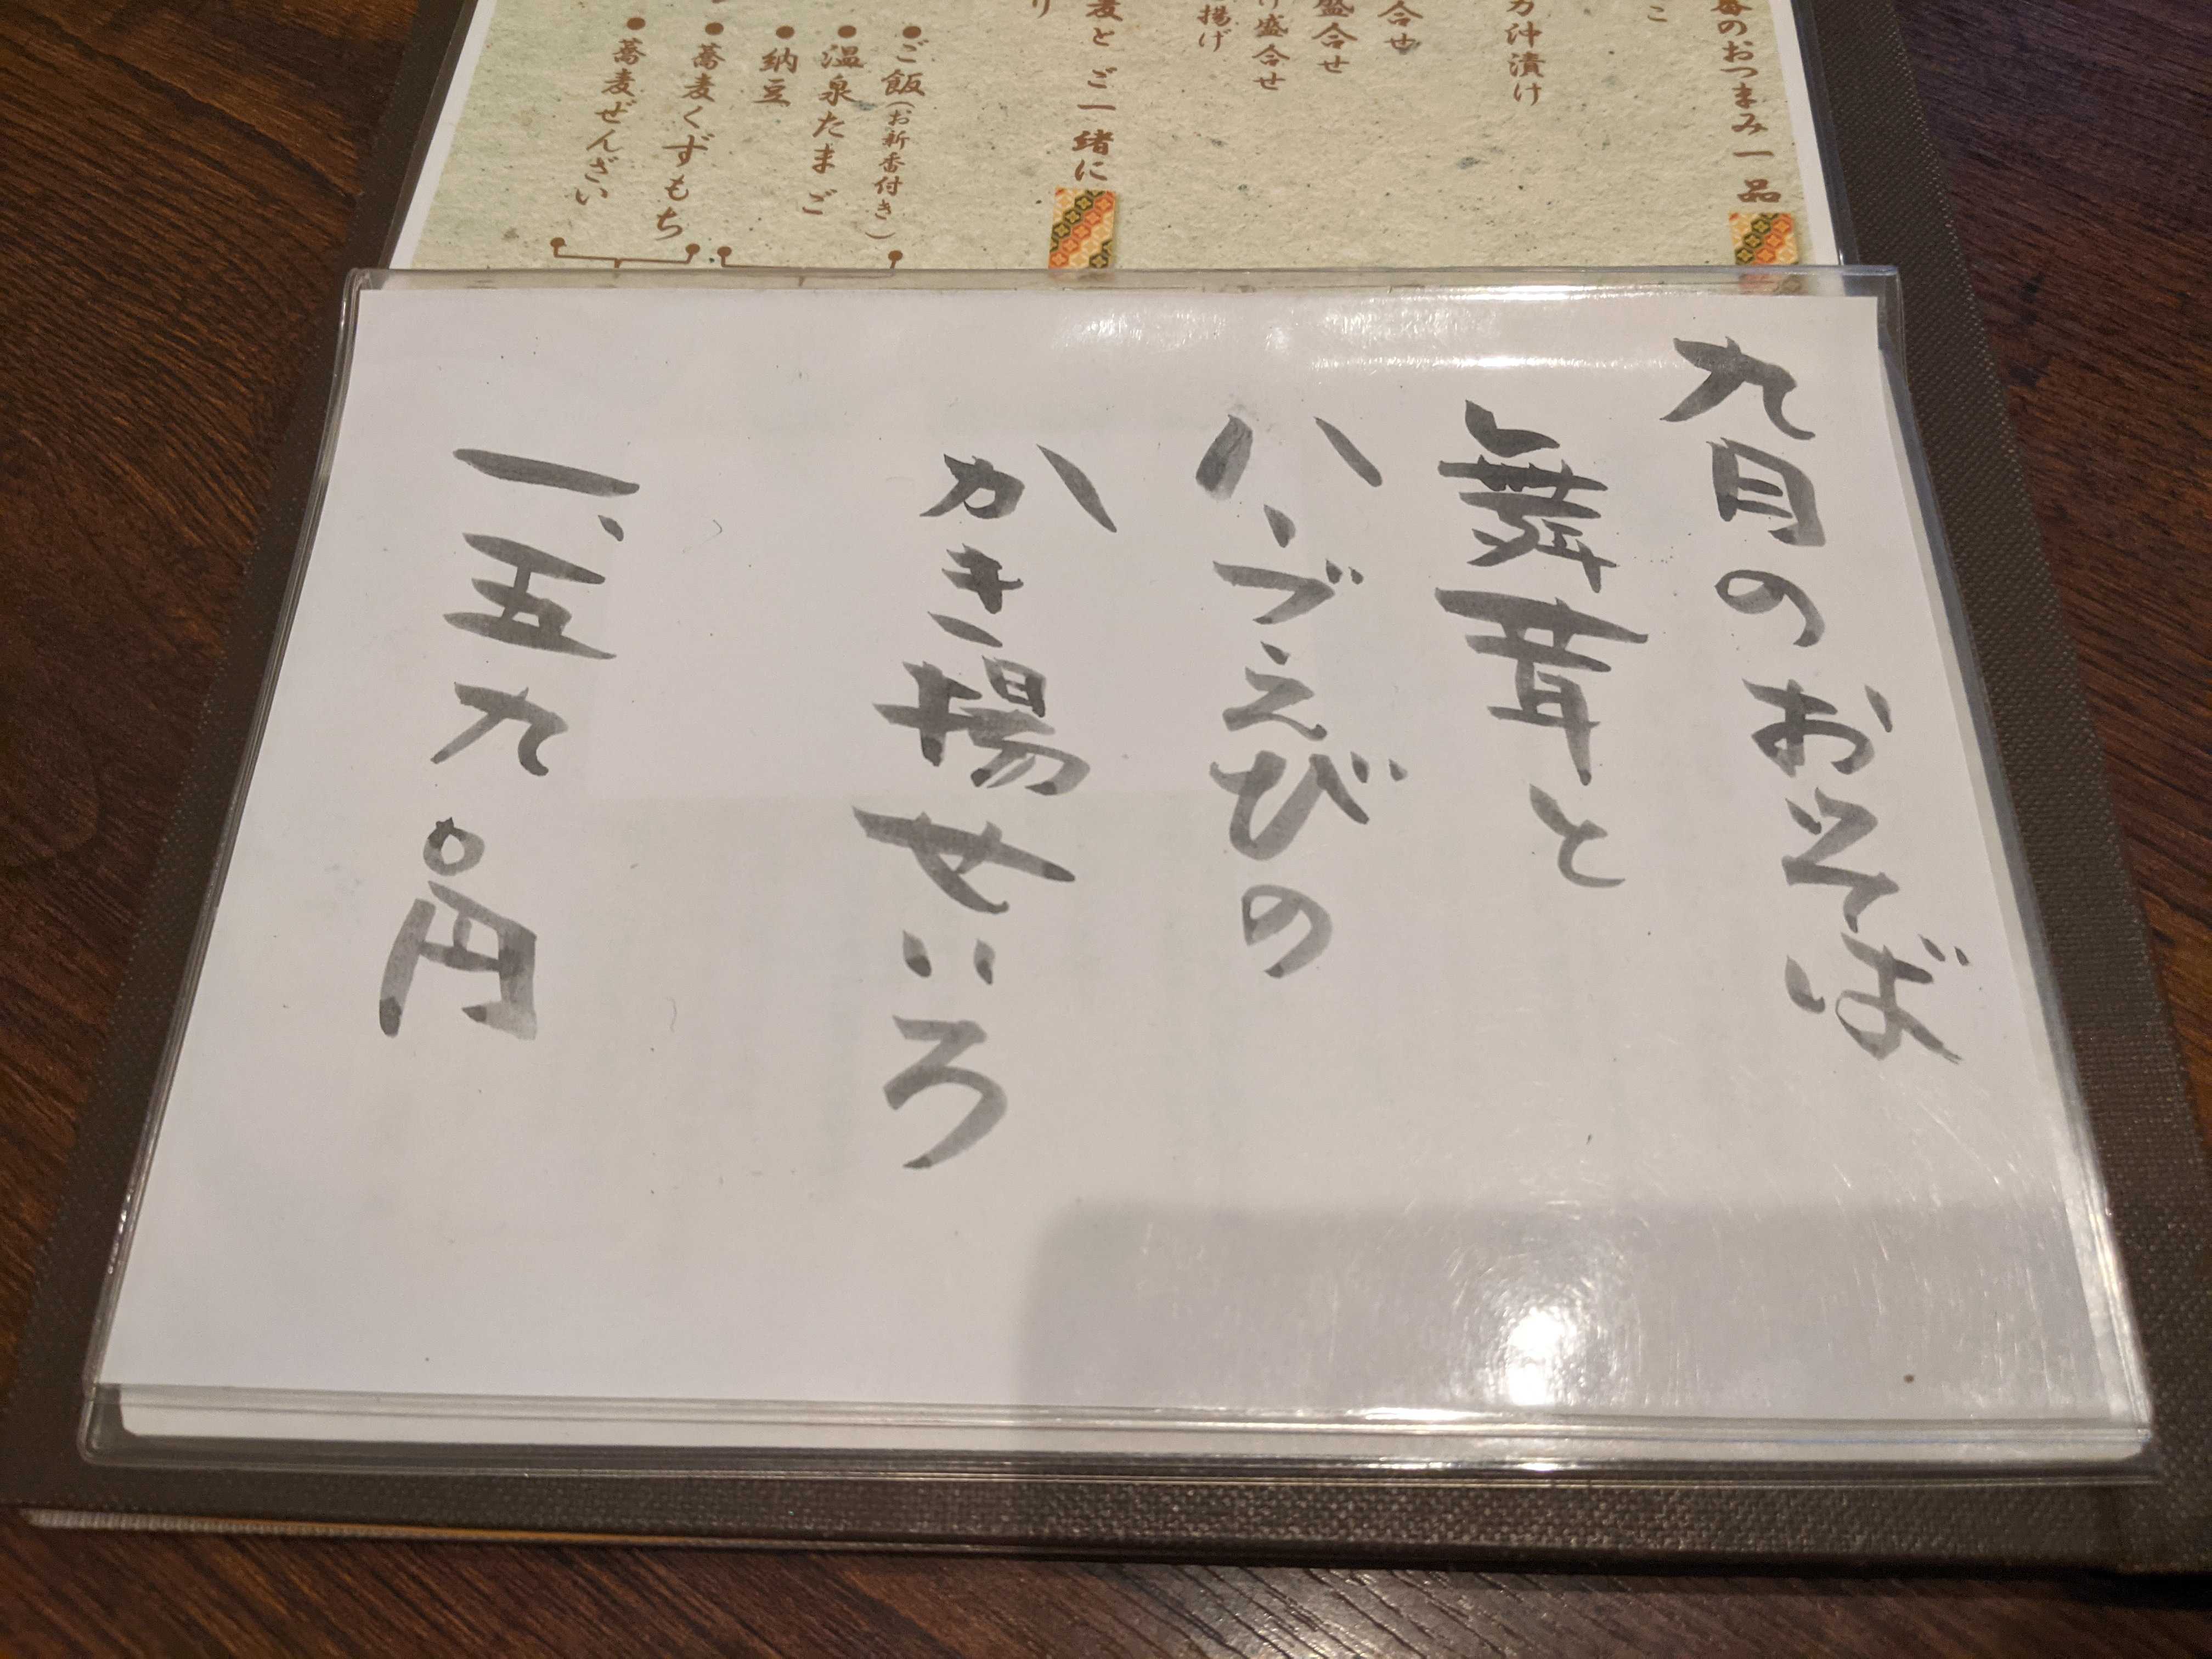 のおつまみ一品
こ
沖漬け
合せ
盛合せ
盛合せ
揚げ
麦とご一緒に
り
●ご飯(お新香付き)
●温泉たまご
●納豆
●蕎麦くずもち
●蕎麦ぜんざい
九月のおそば
舞茸と
ハーブえびの
かき揚せいろ
一、五九〇円